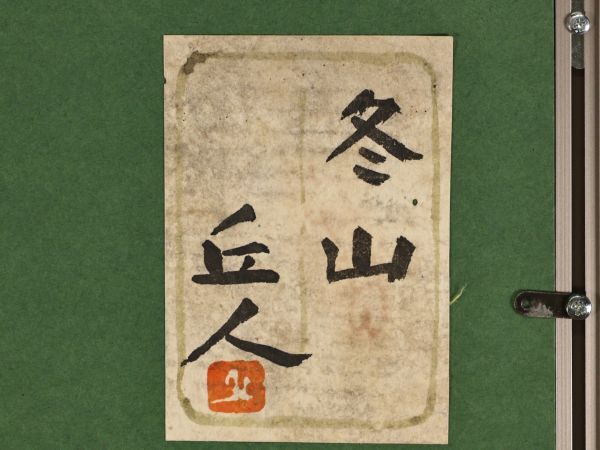 冬山
丘人